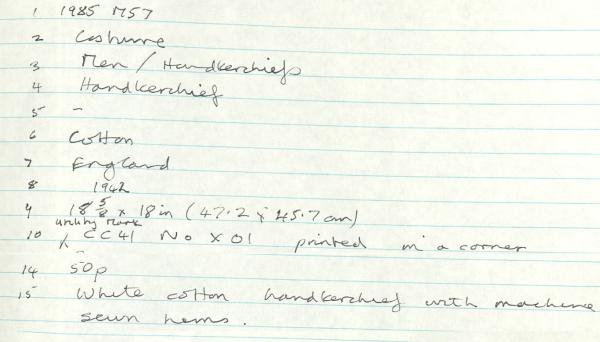 1 1985 M57
2 Costume
3 Men / Handkerchiefs
4 Handkerchief
5 -
6 Cotton
7 England
8 1942
9 18 5/8 x 18 in (47.2 x 45.7 cm)
utility mark
10 ⁁ CC41 No X 01 printed in a corner
14 50p
15 White cotton handkerchief with machine
sewn hems.